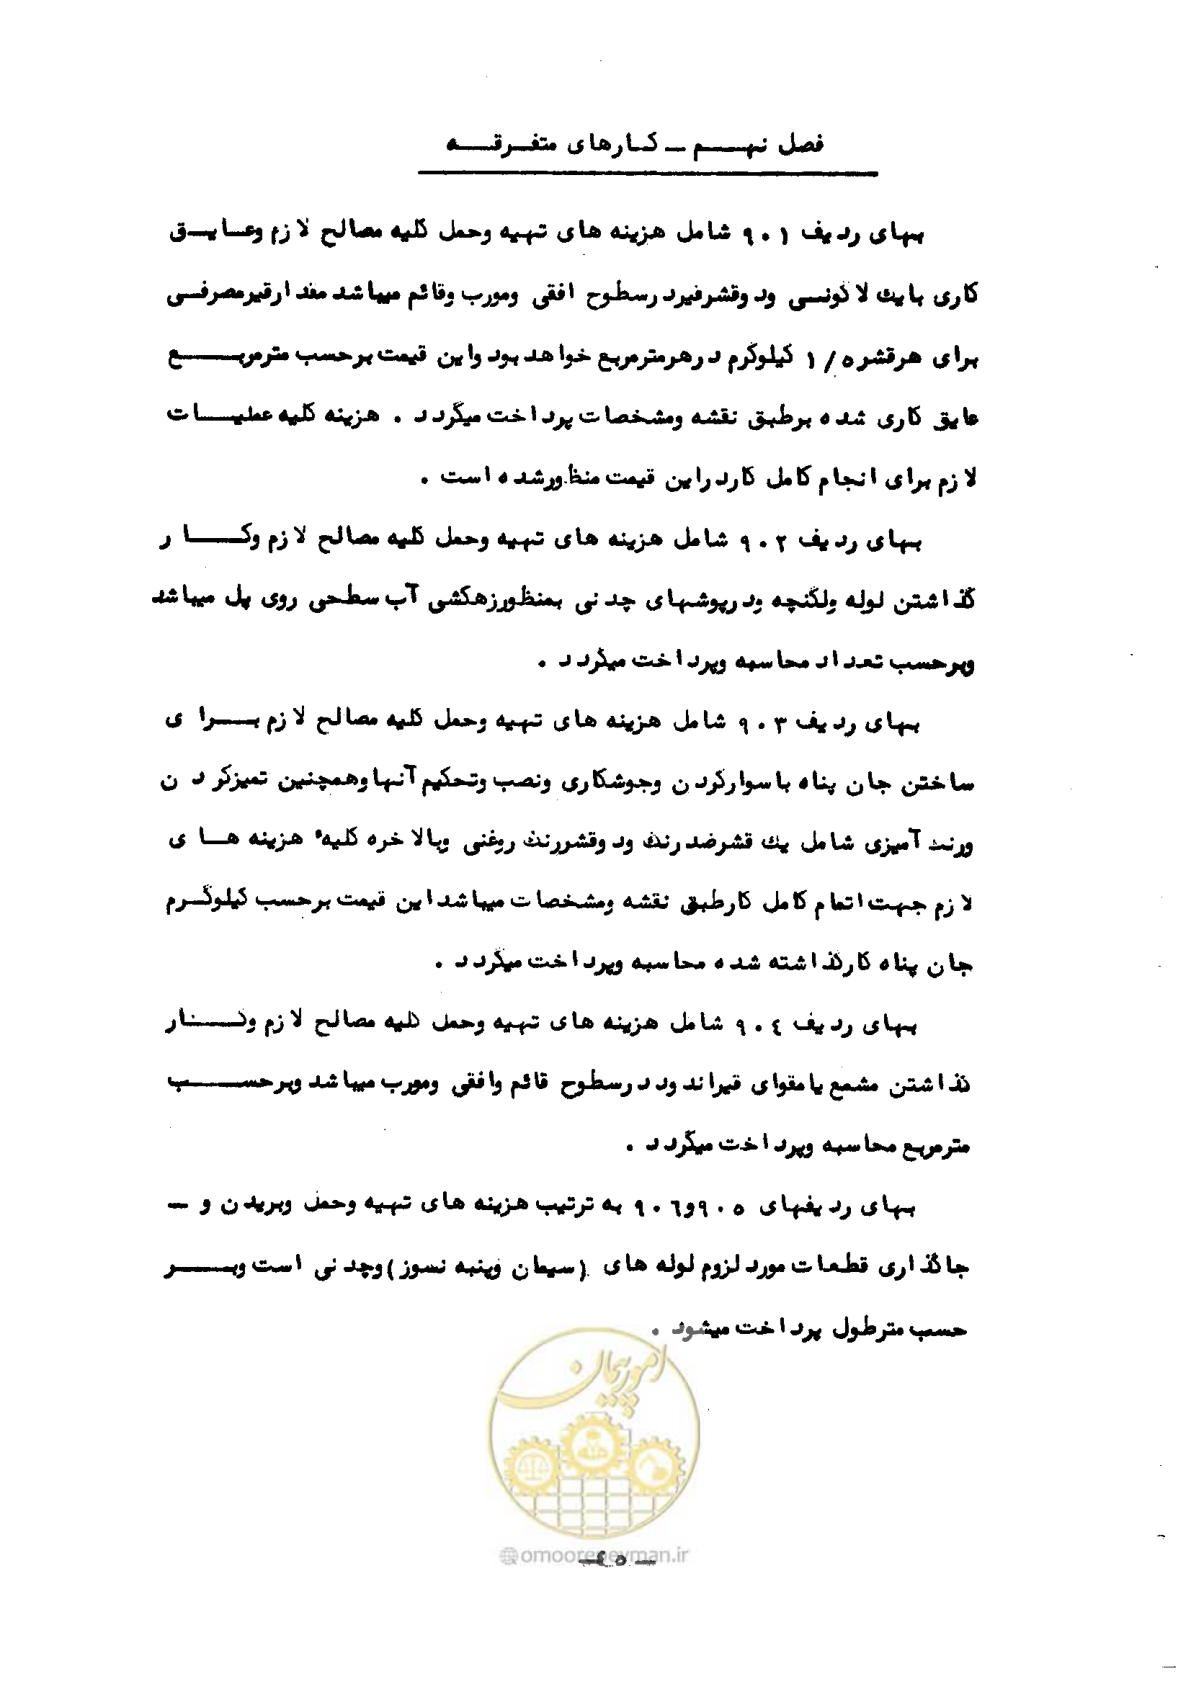 فصل نهم ـ کارهای متفرقه
بهای ردیف ۹۰۱ شامل هزینه های تهیه وحمل کلیه مصالح لازم وعایق
کاری بایک لاگونسی ودوقشرقیردرسطوح افقی ومورب وقائم میباشد مقدارقیرمصرفی
برای هرقشر۱/۵ کیلوگرم درهرمترمربع خواهد بود واین قیمت برحسب مترمربع
عایق کاری شده برطبق نقشه ومشخصات پرداخت میگردد . هزینه کلیه عملیات
لازم برای انجام کامل کاردراین قیمت منظورشده است .
بهای ردیف ۹۰۲ شامل هزینه های تهیه وحمل کلیه مصالح لازم وکار
گذاشتن لوله ولگنچه ودرپوشهای چدنی بمنظورزهکشی آب سطحی روی پل میباشد
وبرحسب تعداد محاسبه وپرداخت میگردد .
بهای ردیف ۹۰۳ شامل هزینه های تهیه وحمل کلیه مصالح لازم برای
ساختن جان پناه باسوارکردن وجوشکاری ونصب وتحکیم آنهاوهمچنین تمیزکردن
ورنگ آمیزی شامل یک قشرضدرنگ ودوقشررنگ روغنی وبالاخره کلیهٔ هزینه های
لازم جهت اتمام کامل کارطبق نقشه ومشخصات میباشداین قیمت برحسب کیلوگرم
جان پناه کارگذاشته شده محاسبه وپرداخت میگردد .
بهای ردیف ۹۰٤ شامل هزینه های تهیه وحمل کلیه مصالح لازم وکنار
گذاشتن مشمع یامقوای قیراندوددرسطوح قائم وافقی ومورب میباشد وبرحسب
مترمربع محاسبه وپرداخت میگردد .
بهای ردیفهای ۹۰۵و۹۰٦ به ترتیب هزینه های تهیه وحمل وبریدن و ـ
جاگذاری قطعات مورد لزوم لوله های (سیمان وپنبه نسوز)وچدنی است وبر
حسب مترطول پرداخت میشود .
امور پیمان
@omoorepeyman.ir
ـ ٤۵ ـ